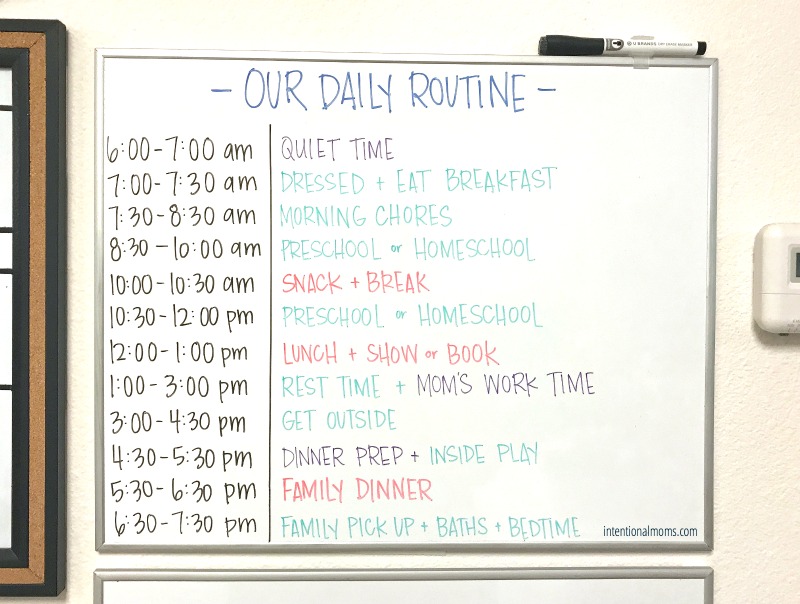 U BRANDS DRY ERASE MARKER
- OUR DAILY ROUTINE -
6:00-7:00 am QUIET TIME
7:00-7:30 am DRESSED + EAT BREAKFAST
7:30-8:30 am MORNING CHORES
8:30-10:00 am PRESCHOOL or HOMESCHOOL
10:00-10:30 am SNACK + BREAK
10:30-12:00 pm PRESCHOOL or HOMESCHOOL
12:00-1:00 pm LUNCH + SHOW or BOOK
1:00-3:00 pm REST TIME + MOM'S WORK TIME
3:00-4:30 pm GET OUTSIDE
4:30-5:30 pm DINNER PREP + INSIDE PLAY
5:30-6:30 pm FAMILY DINNER
6:30-7:30 pm FAMILY PICK UP + BATHS + BEDTIME
intentionalmoms.com